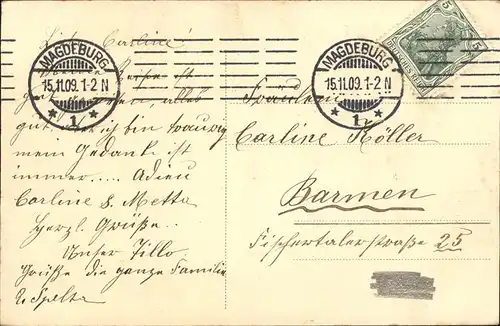 Liebe Carline!
MAGDEBURG
15.11.09. 1-2 N
* 1 *
MAGDEBURG
15.11.09. 1-2 N
* 1 *
5 5
DEUTSCHES REICH
ist
alles
gut. ich bin traurig
mein Gedank ist
immer .... Adieu
Carline s. Metta
Herzl. Grüße..
Unser Tillo
Grüße die ganze Familie
Spelte
Fräulein
Carline Köller
Barmen
Fischertalerstraße 25